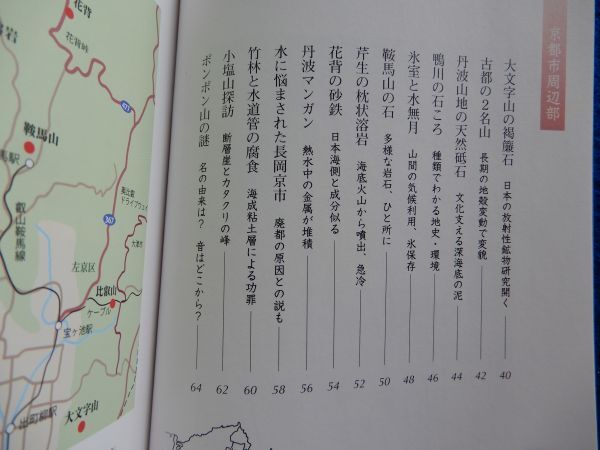 京都市周辺部
大文字山の褐簾石 日本の放射性鉱物研究開く 40
古都の2名山 長期の地殻変動で変貌 42
丹波山地の天然砥石 文化支える深海底の泥 44
鴨川の石ころ 種類でわかる地史・環境 46
氷室と水無月 山間の気候利用、氷保存 48
鞍馬山の石 多様な岩石、ひと所に 50
芹生の枕状溶岩 海底火山から噴出、急冷 52
花背の砂鉄 日本海側と成分似る 54
丹波マンガン 熱水中の金属が堆積 56
水に悩まされた長岡京市 廃都の原因との説も 58
竹林と水道管の腐食 海成粘土層による功罪 60
小塩山探訪 断層崖とカタクリの峰 62
ポンポン山の謎 名の由来は？ 音はどこから？ 64
花背
花背峠
477
鞍馬山
馬駅
叡山鞍馬線
奥比叡
ドライブウェイ
367
左京区
大津市
比叡山
ケーブル
宝ヶ池駅
出町柳駅
大文字山